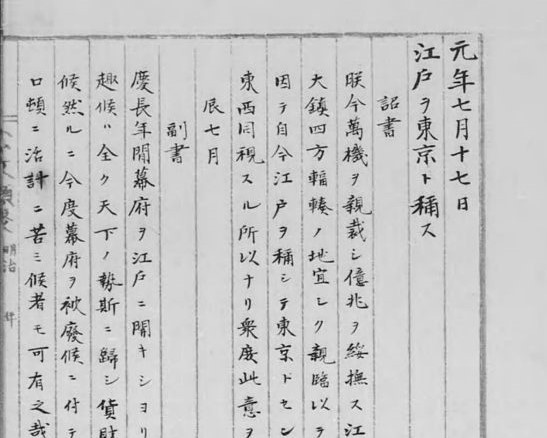 元年七月十七日
江戸ヲ東京ト稱ス
詔書
朕今萬機ヲ親裁シ億兆ヲ綏撫ス江
大鎮四方輻輳ノ地宜シク親臨以テ
因テ自今江戸ヲ稱シテ東京トセン
東西同視スル所以ナリ衆庶此意ヲ
辰七月
副書
慶長年間幕府ヲ江戸ニ開キシヨリ
趣候ハ全ク天下ノ勢斯ニ歸シ貨財
候然ルニ今度幕府ヲ被廢候ニ付テ
口頓ニ活計ニ苦ミ候者モ可有之哉
明治